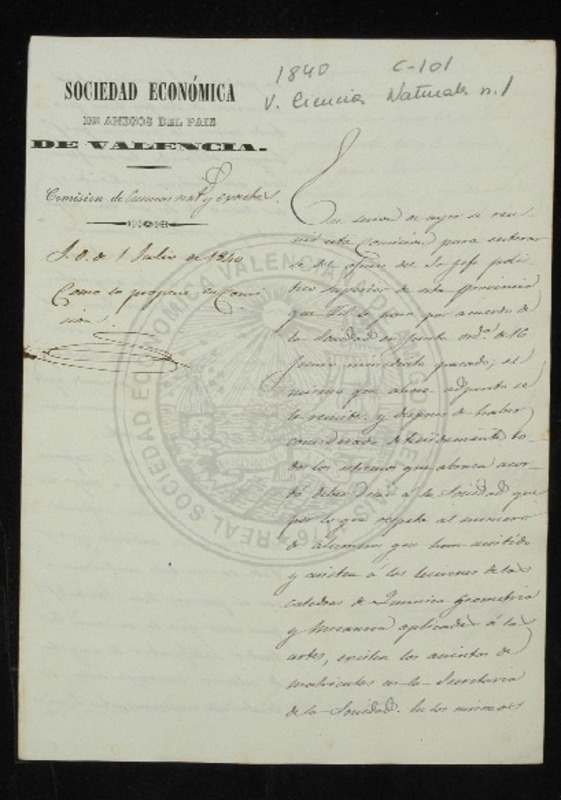 1840 C-101
V. Ciencias Naturales n. 1
SOCIEDAD ECONÓMICA
DE AMIGOS DEL PAIS
DE VALENCIA.
Comision de Ciencias nat.s y Exactas.
S. O. de 1 Julio de 1840
Como lo propone la Comi-
sion.
En la sesion de ayer se reu-
nió esta Comision para enterar-
se del oficio del Sr. Gefe polí-
tico superior de esta Provincia
que V.S. le pasa por acuerdo de
la Sociedad en junta ord.a de 16
Junio inmediato pasado; el
mismo que ahora adjunto se
le remite. y despues de haber
considerado detenidamente to-
dos los estremos que abraza acor-
dó deber decir á la Sociedad que
por lo que respeta al numero
de alumnos que han asistido
y asisten á las lecciones de las
catedras de Quimica Geometria
y Mecanica aplicadas á las
artes, existen los asientos de
matriculas en la Secretaria
de la Sociedad. En los mismos
REAL SOCIEDAD ECONOMICA VALENCIANA DE AMIGOS DEL PAIS 1776